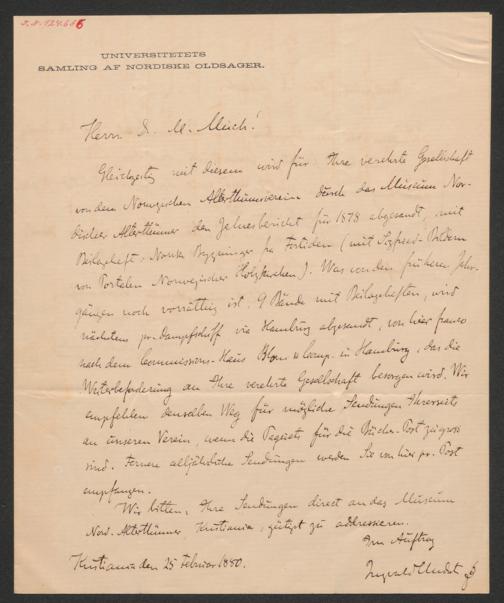 UNIVERSITETETS
SAMLING AF NORDISKE OLDSAGER.
Herrn D. M. Much!
Gleichzeitig mit diesem wird für Ihre verehrte Gesellschaft
von dem Norwegischen Alterthumsverein durch das Museum Nor-
discher Alterthümer den Jahresbericht für 1878 abgesandt, mit
Beilagsheft, Norske Bygninger fra Fortiden (mit Bildern
von Portalen Norwegischer Holzkirchen). Was von den früheren Jahr-
gängen noch vorräthig ist, 9 Bände mit Beilagsheften, wird
nächstens pr. Dampfschiff via Hamburg abgesandt, von hier franco
nach dem Commissions-Haus Blom & Comp. in Hamburg, das die
Weiterbeförderung an Ihre verehrte Gesellschaft besorgen wird. Wir
empfehlen denselben Weg für mögliche Sendungen Ihrerseits
an unseren Verein, wenn die Paquets für die Bücher-Post zu gross
sind. Fernere alljährliche Sendungen werden Sie von hier pr. Post
empfangen.
Wir bitten, Ihre Sendungen direct an das Museum
Nord. Alterthümer Kristiania, gütigst zu addressieren.
Im Auftrag
Kristiania den 25 Februar 1880.
Ingvald Undset